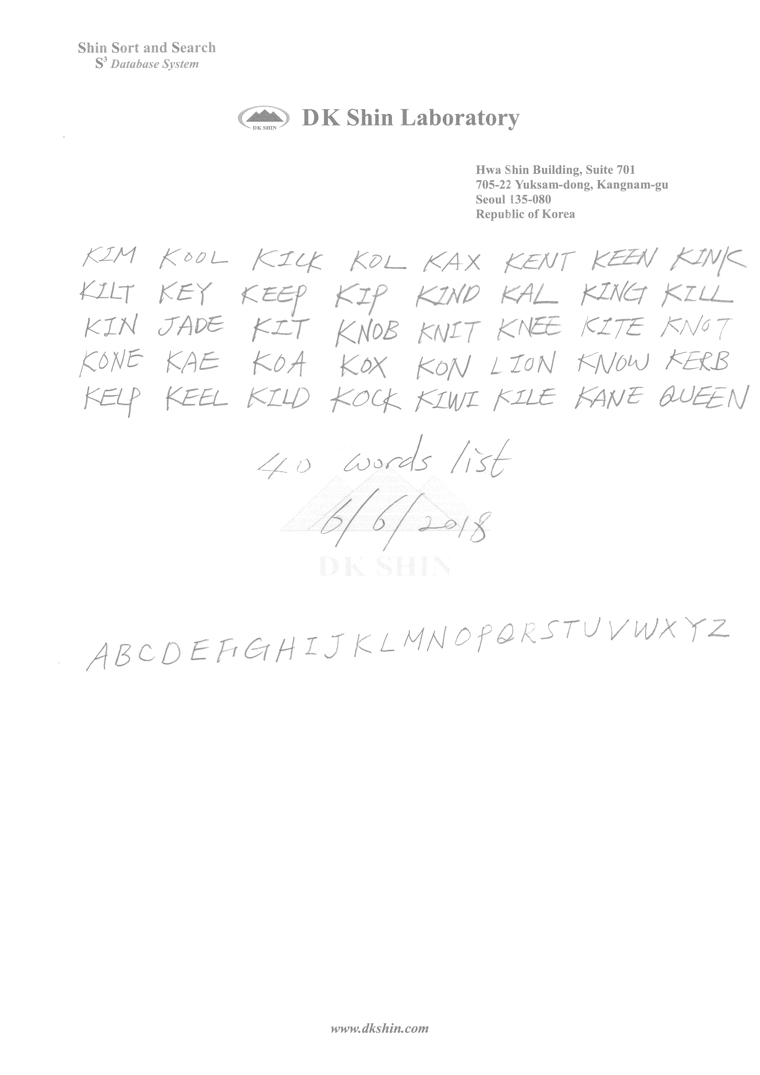 Shin Sort and Search
S³ Database System
DK SHIN
DK Shin Laboratory
Hwa Shin Building, Suite 701
705-22 Yuksam-dong, Kangnam-gu
Seoul 135-080
Republic of Korea
KIM KOOL KICK KOL KAX KENT KEEN KINK
KILT KEY KEEP KIP KIND KAL KING KILL
KIN JADE KIT KNOB KNIT KNEE KITE KNOT
KONE KAE KOA KOX KON LION KNOW KERB
KELP KEEL KILD KOCK KIWI KILE KANE QUEEN
40 words list
6/6/2018
DK SHIN
ABCDEFGHIJKLMNOPQRSTUVWXYZ
www.dkshin.com